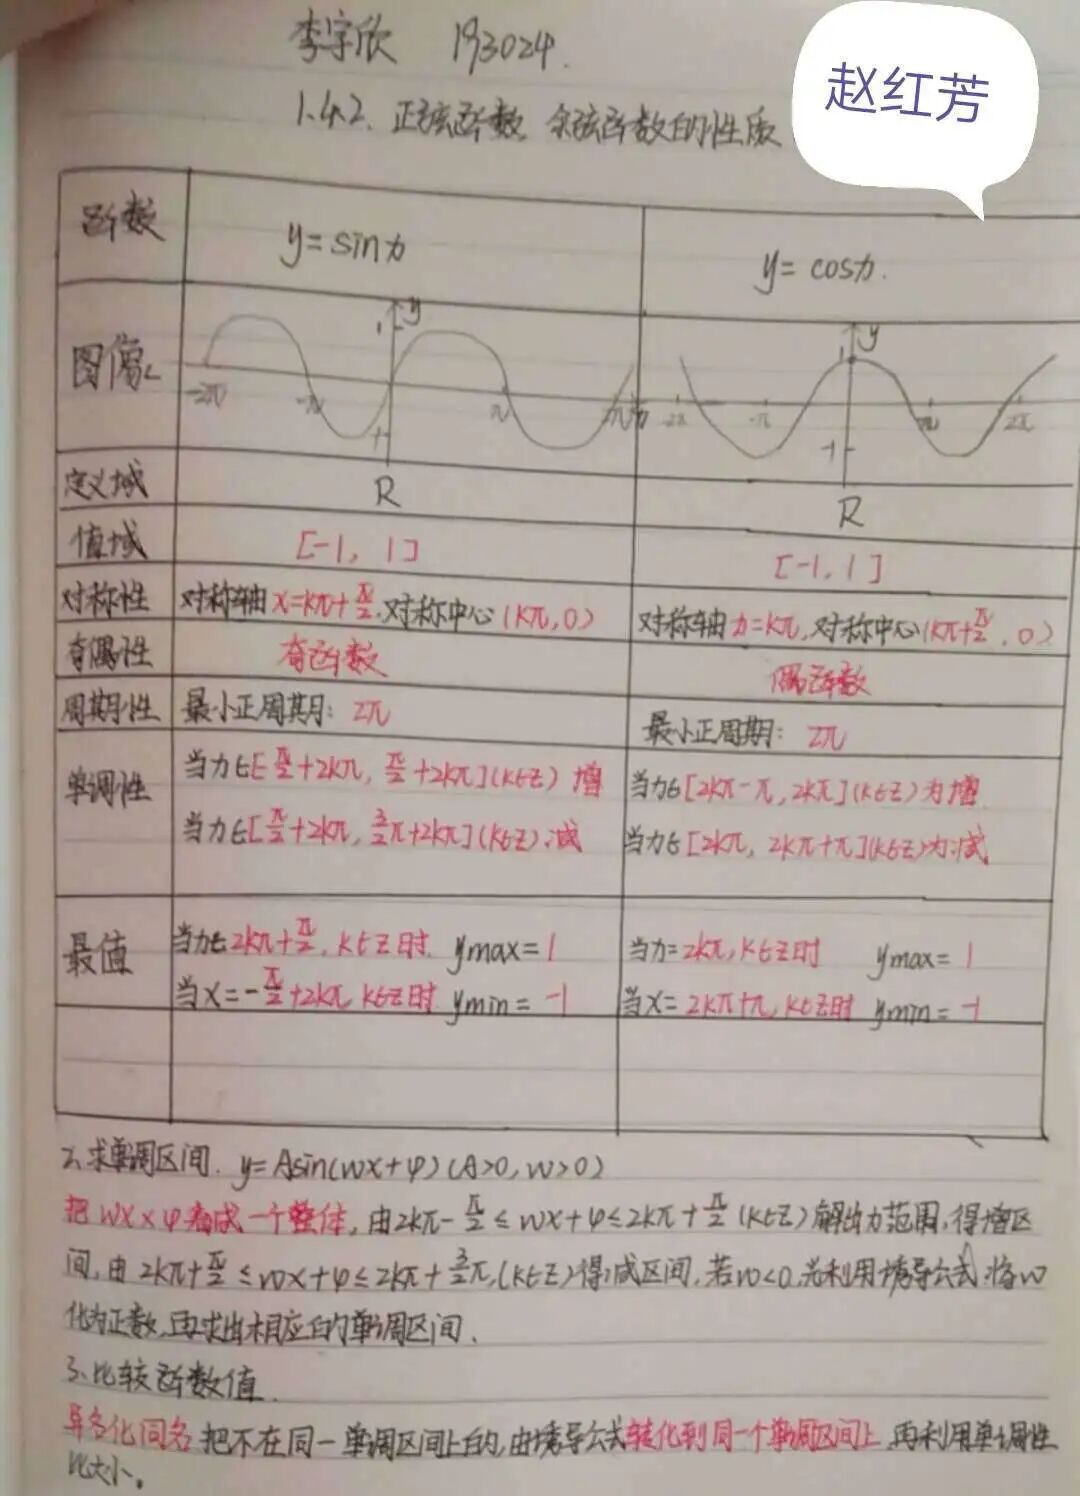 李宇欣 193024.
赵红芳
1.4.2. 正弦函数 余弦函数的性质
函数 y=sinx y=cosx.
图像
y 1 -2π -π π 2π x -1
y 1 -2π -π π 2π -1
定义域 R R
值域 [-1, 1] [-1, 1]
对称性 对称轴x=kπ+π/2.对称中心(kπ,0) 对称轴x=kπ,对称中心(kπ+π/2,0)
奇偶性 奇函数 偶函数
周期性 最小正周期:2π 最小正周期:2π
单调性 当x∈[π/2+2kπ, π/2+2kπ](k∈Z) 增 当x∈[2kπ-π, 2kπ](k∈Z)为增
当x∈[π/2+2kπ, 3/2π+2kπ](k∈Z).减 当x∈[2kπ, 2kπ+π](k∈Z)为减
最值 当x∈2kπ+π/2, k∈Z时 ymax=1 当x=2kπ,k∈Z时 ymax=1
当x=-π/2+2kπ,k∈Z时 ymin=-1 当x=2kπ+π,k∈Z时 ymin=-1
2、求单调区间. y=Asin(wx+φ)(A>0,w>0)
把wx×φ看成一个整体,由2kπ-π/2≤wx+φ≤2kπ+π/2(k∈Z)解出x范围,得增区
间,由2kπ+π/2≤wx+φ≤2kπ+3/2π,(k∈Z)得减区间,若w<0,先利用诱导公式,将w
化为正数,再求出相应的单调区间.
3、比较函数值.
异名化同名,把不在同一单调区间上的,由诱导公式转化到同一个单调区间上,再利用单调性
比大小。